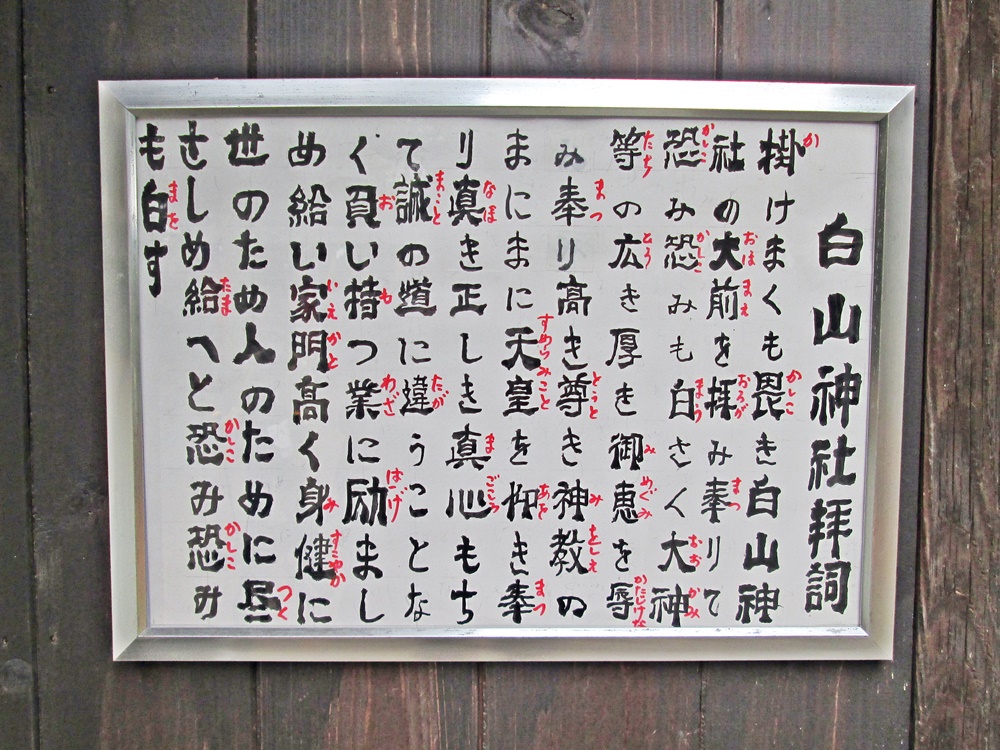 白山神社拝詞
掛けまくも畏き白山神
社の大前を拝み奉りて
恐み恐みも白さく大神
等の広き厚き御恵を辱
み奉り高き尊き神教の
まにまに天皇を仰き奉
り真き正しき真心もち
て誠の道に違うことな
く負い持つ業に励まし
め給い家門高く身健に
世のため人のために尽
さしめ給へと恐み恐み
も白す